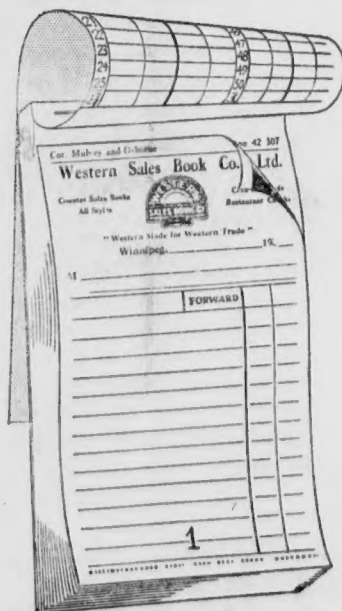 22
23
24
25
47
48
49
50
Cor. Mulvey and Osborne
42 307
Western Sales Book Co. Ltd.
Counter Sales Books
All Styles
WESTERN
SALES
Restaurant Checks
"Western Made for Western Trade"
Winnipeg, 19
M
FORWARD
1